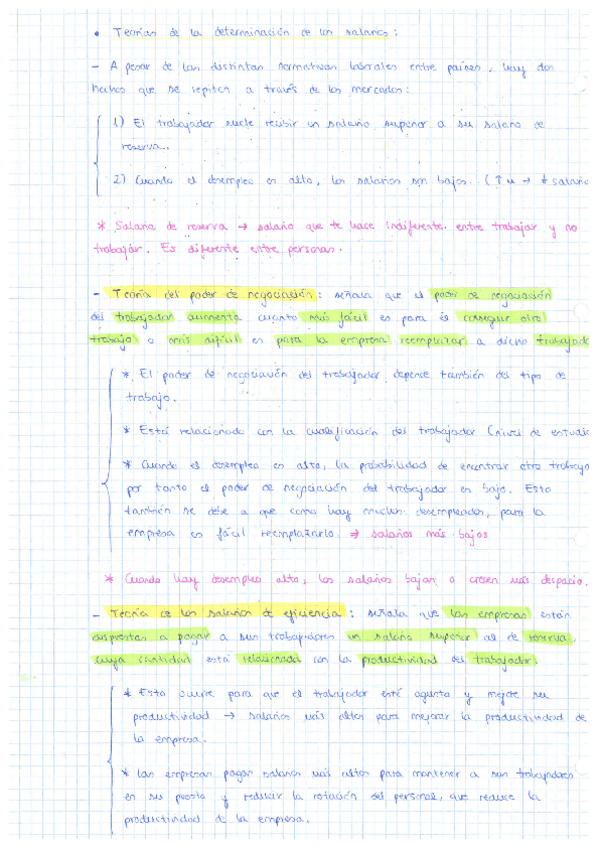 • Teorías de la determinación de los salarios:
- A pesar de las distintas normativas laborales entre países, hay dos
hechos que se repiten a través de los mercados:
1) El trabajador suele recibir un salario superior a su salario de
reserva.
2) Cuando el desempleo es alto, los salarios son bajos. (↑u → ↓ salario
* Salario de reserva → salario que te hace indiferente entre trabajar y no
trabajar. Es diferente entre personas.
- Teoría del poder de negociación: señala que el poder de negociación
del trabajador aumenta cuanto más fácil es para él conseguir otro
trabajo o más difícil es para la empresa reemplazar a dicho trabajado
* El poder de negociación del trabajador depende también del tipo de
trabajo.
* Está relacionado con la cualificación del trabajador (nivel de estudio
* Cuando el desempleo es alto, la probabilidad de encontrar otro trabajo
por tanto el poder de negociación del trabajador es bajo. Esto
también se debe a que como hay muchos desempleados, para la
empresa es fácil reemplazarlo. ⇒ salarios más bajos
* Cuando hay desempleo alto, los salarios bajan o crecen más despacio.
- Teoría de los salarios de eficiencia: señala que las empresas están
dispuestas a pagar a sus trabajadores un salario superior al de reserva,
cuya cantidad está relacionada con la productividad del trabajador.
* Esto ocurre para que el trabajador esté agusto y mejore su
productividad → salarios más altos para mejorar la productividad de
la empresa.
* Las empresas pagan salarios más altos para mantener a sus trabajadores
en su puesto y reducir la rotación del personal, que reduce la
productividad de la empresa.